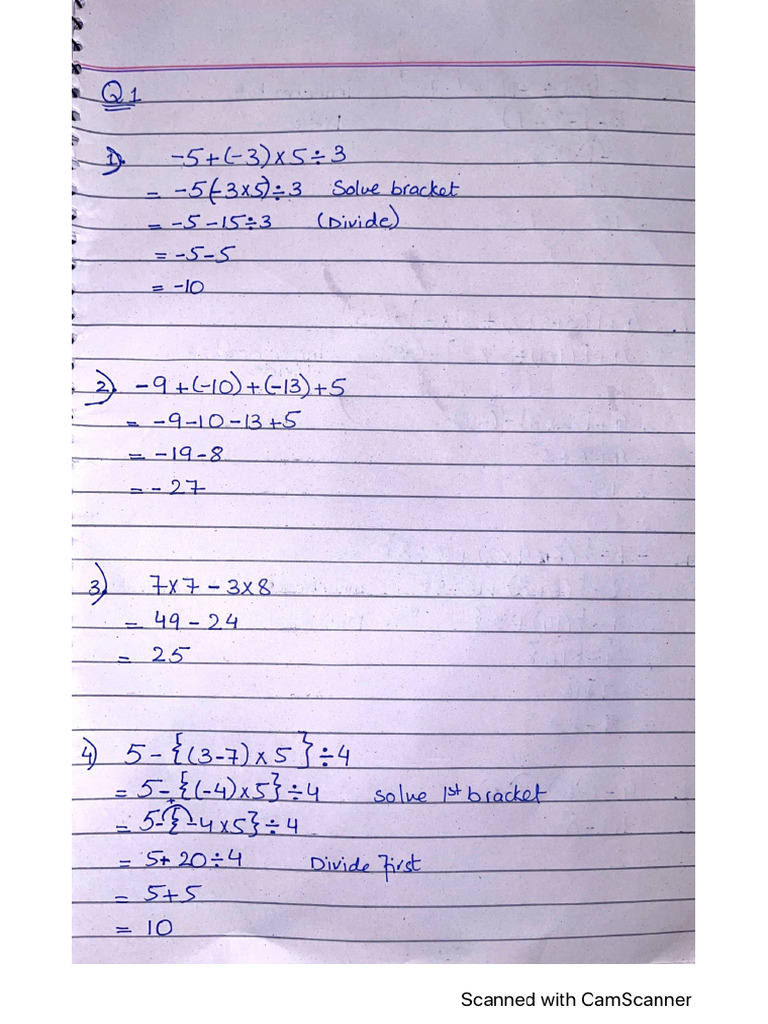 Q1
1). -5+(-3)×5÷3
= -5(-3×5)÷3 Solve bracket
= -5-15÷3 (Divide)
= -5-5
= -10
2). -9+(-10)+(-13)+5
= -9-10-13+5
= -19-8
= -27
3) 7×7-3×8
= 49-24
= 25
4) 5-{(3-7)×5}÷4
= 5-{(-4)×5}÷4 solve 1st bracket
+
= 5-{-4×5}÷4
= 5+20÷4 Divide First
= 5+5
= 10
Scanned with CamScanner